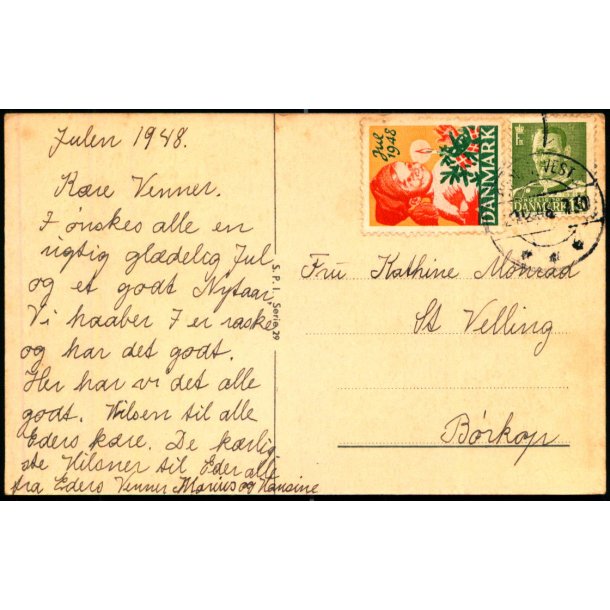 Julen 1948.
Kære Venner.
I ønskes alle en
rigtig glædelig Jul
og et godt Nytaar,
Vi haaber I er raske
og har det godt.
Her har vi det alle
godt. Hilsen til alle
Eders kære. De kærlig
ste Hilsner til Eder alle
fra Eders Venner Marius og Hansine
S. P. I. Serie 29
Jul
1948
DANMARK
DANMARK
VEST
Fru Kathine Monrad
St Velling
Børkop